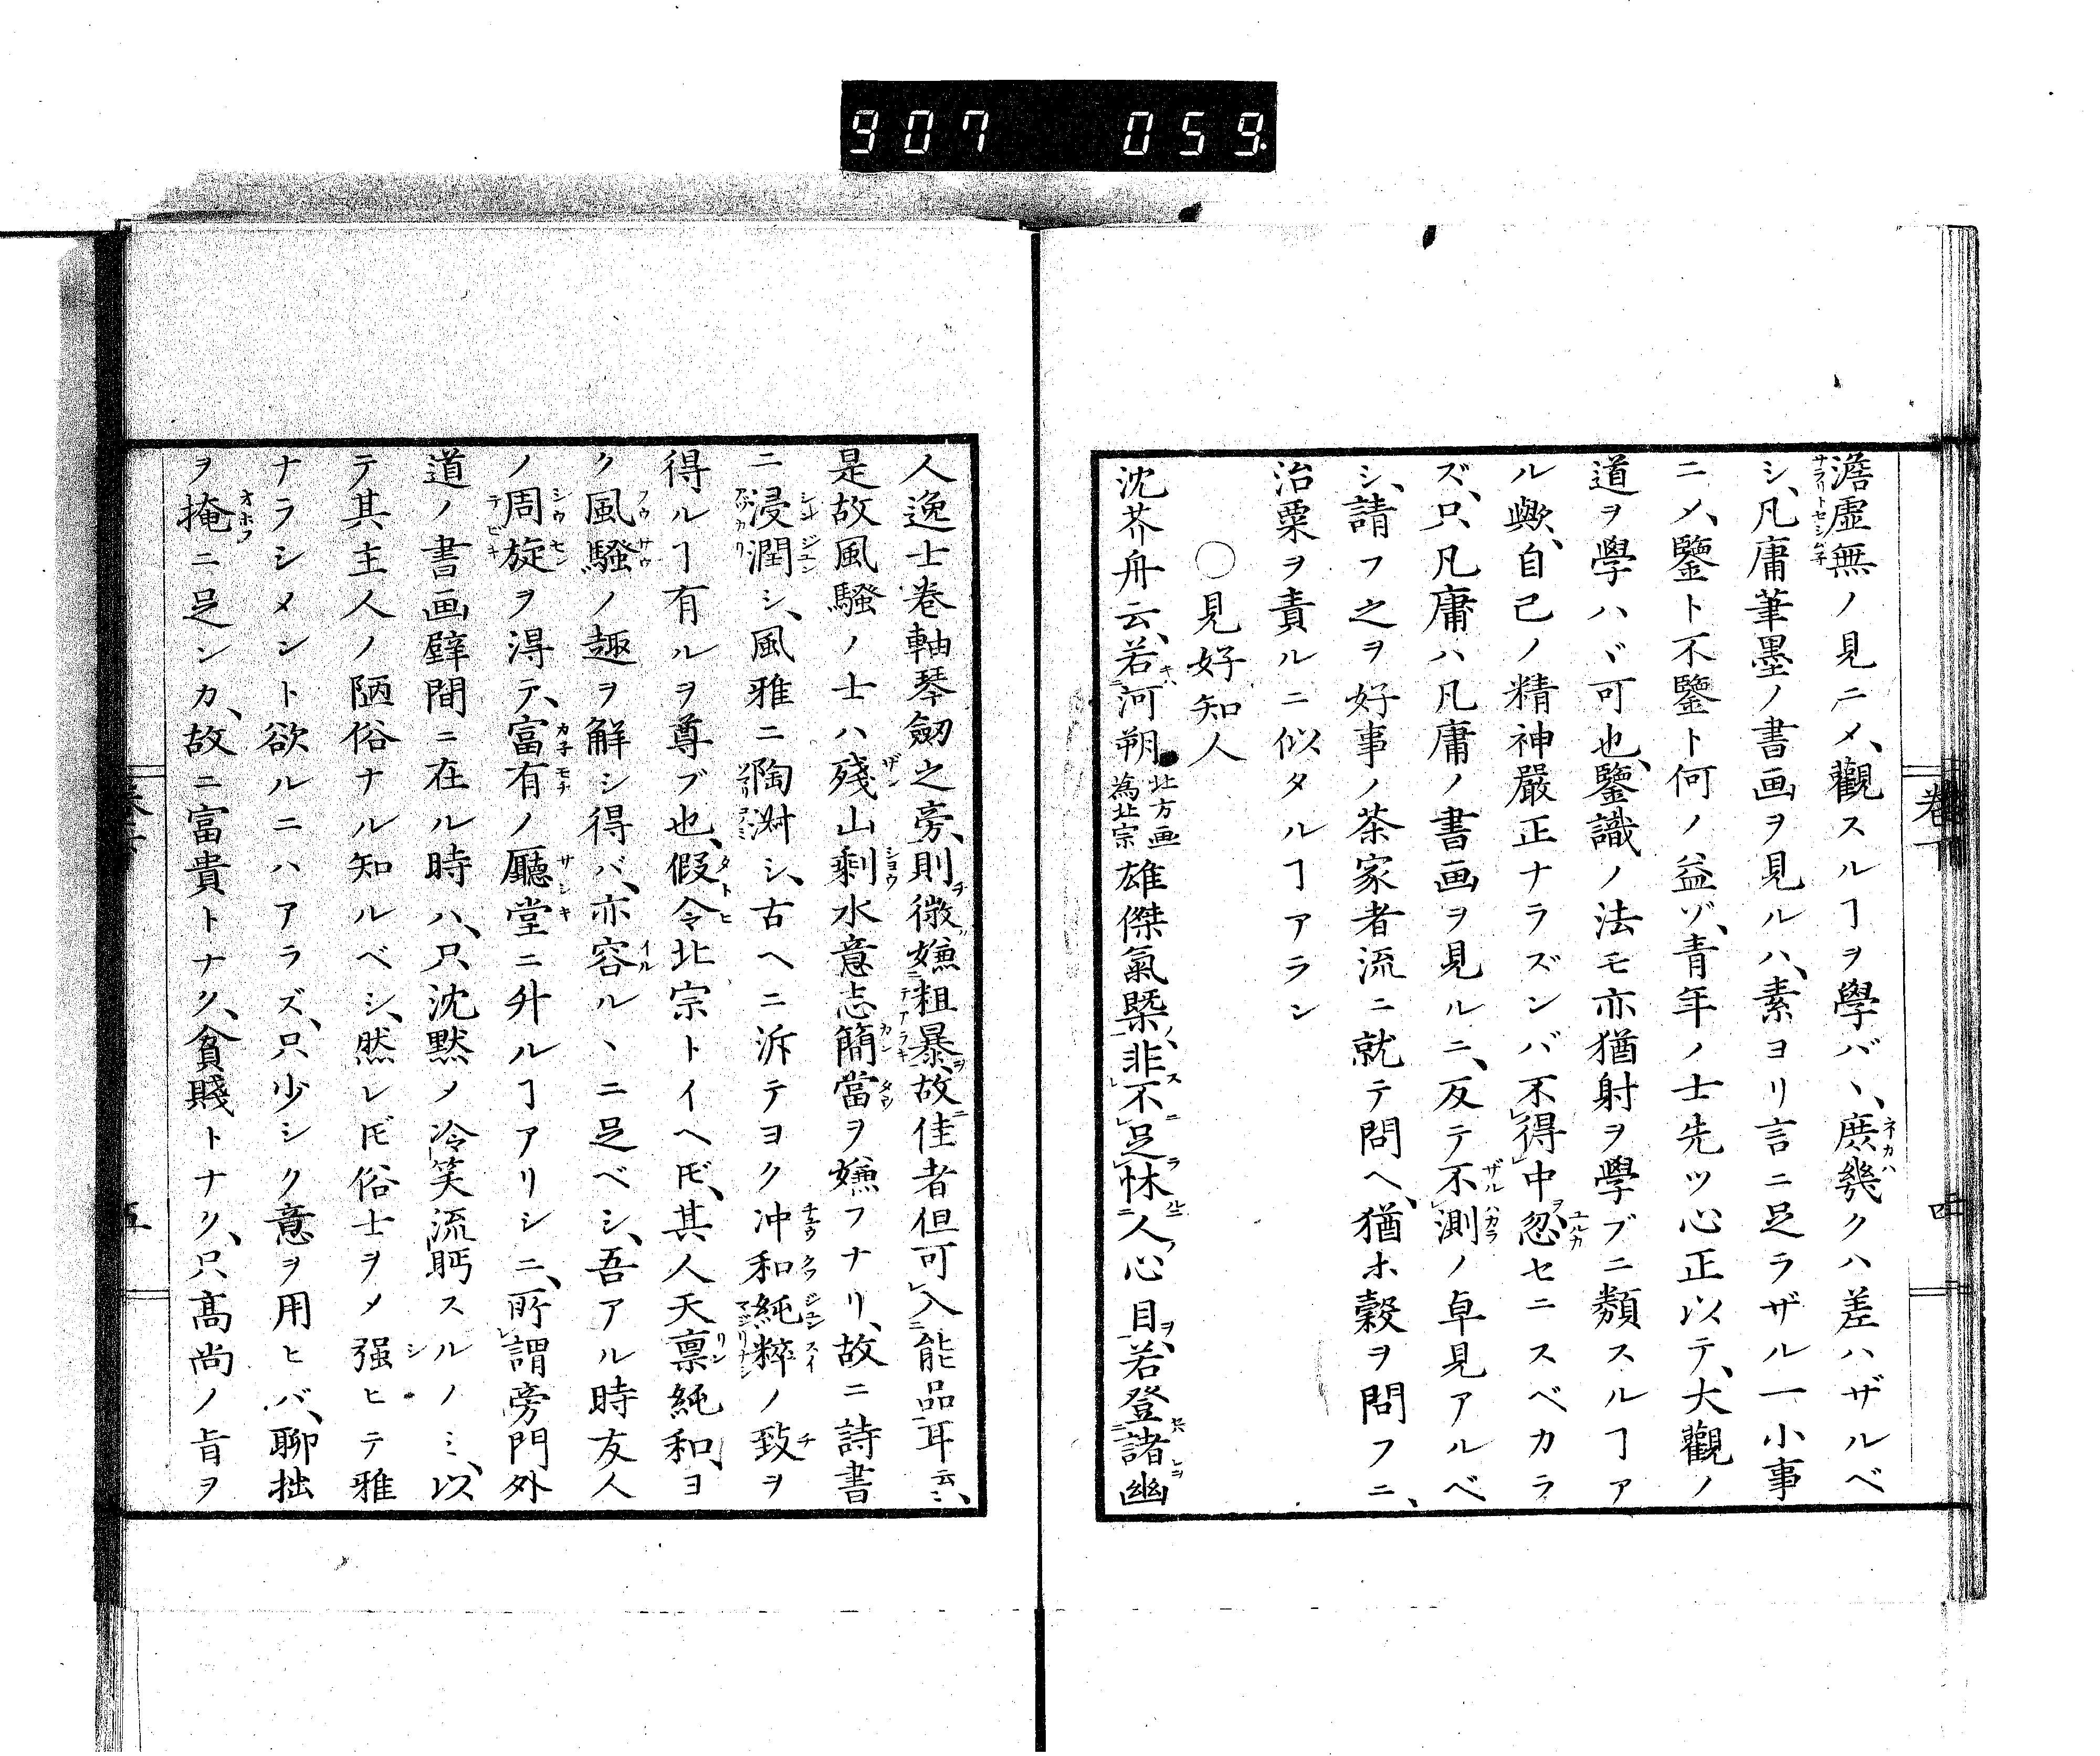 907 059
卷下 四
澹虚無ノ見ニメ、觀スルヿヲ學バヽ、庶幾クハ差ハザルベ
シ、凡庸筆墨ノ書画ヲ見ルハ、素ヨリ言ニ足ラザル一小事
ニメ、鑒ト不鑒ト何ノ益ゾ、青年ノ士先ツ心正以テ、大觀ノ
道ヲ學ハヾ可也、鑒識ノ法モ亦猶射ヲ學ブニ類スルヿア
ル歟、自己ノ精神嚴正ナラズンバ不得中、忽セニスベカラ
ズ、只凡庸ハ凡庸ノ書画ヲ見ルニ、反テ不測ノ卓見アルベ
シ、請フ之ヲ好事ノ茶家者流ニ就テ問ヘ、猶ホ穀ヲ問フニ、
治粟ヲ責ルニ似タルヿアラン
〇見好知人
沈芥舟云、若河朔北方画為北宗雄傑氣槩、非不足怵人心目、若登諸幽
人逸士卷軸琴劒之旁、則微嫌粗暴、故佳者但可入能品耳云云、
是故風騷ノ士ハ殘山剩水意志簡當ヲ嫌フナリ、故ニ詩書
ニ浸潤シ、風雅ニ陶淑シ、古ヘニ泝テヨク冲和純粹ノ致ヲ
得ルヿ有ルヲ尊ブ也、假令北宗トイヘ𪜈、其人天禀純和、ヨ
ク風騷ノ趣ヲ解シ得バ、亦容ルヽニ足ベシ、吾アル時友人
ノ周旋ヲ得テ、富有ノ廳堂ニ升ルヿアリシニ、所謂旁門外
道ノ書画壁間ニ在ル時ハ、只沈黙メ冷笑流眄スルノミ、以
テ其主人ノ陋俗ナル知ルベシ、然レ𪜈俗士ヲメ强ヒテ雅
ナラシメント欲ルニハアラズ、只少シク意ヲ用ヒバ、聊拙
ヲ掩ニ足ンカ、故ニ富貴トナク、貧賤トナク、只髙尚ノ旨ヲ
五